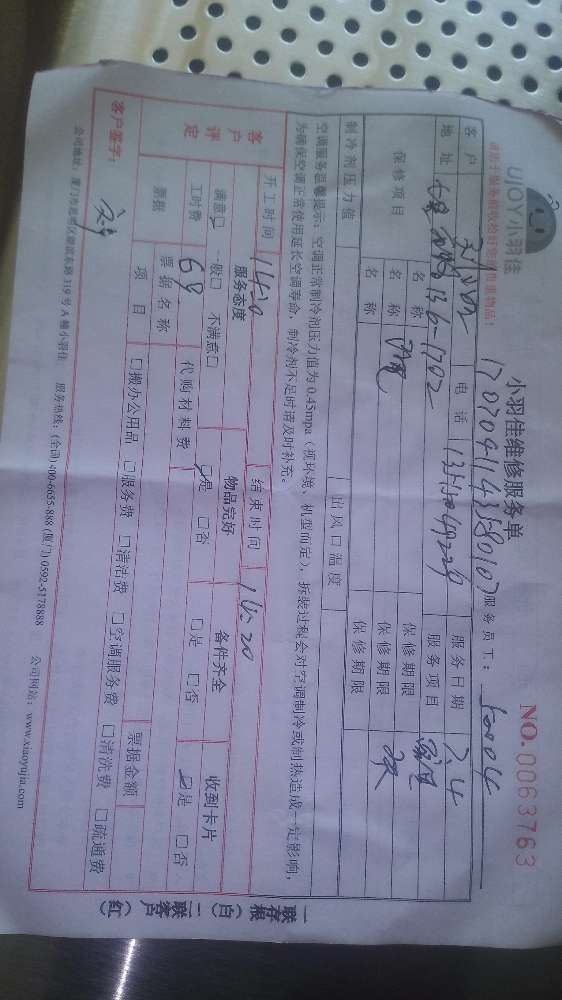 UJOY小羽佳
小羽佳维修服务单
NO.0063763
请您于服务前收拾好您的贵重物品!
服务员工:
客户 电话 服务日期 7.4
地址 服务项目
保修项目 名称 保修期限
名称 保修期限
名称 保修期限
制冷剂压力值 出风口温度
空调服务温馨提示:空调正常制冷剂压力值为0.45mpa(视环境、机型而定),拆装过程会对空调制冷或制热造成一定影响,
为确保空调正常使用延长空调寿命,制冷剂不足时请及时补充。
开工时间 14:20 结束时间
客户评定 服务态度 物品完好 备件齐全 收到卡片
满意□ 一般□ 不满意□ ☑是 □否 □是 □否 ☑是 □否
工时费 68 代购材料费
票据 票据名称 票据金额
项目 □搬办公用品 □服务费 □清洁费 □空调服务费 □清洗费 □疏通费
客户签字:
公司地址:厦门市思明区湖滨东路319号A幢小羽佳 服务热线:(全国)400-6655-888 (厦门)0592-5178888 公司网站:www.xiaoyujia.com
一联存根(白) 二联客户(红)